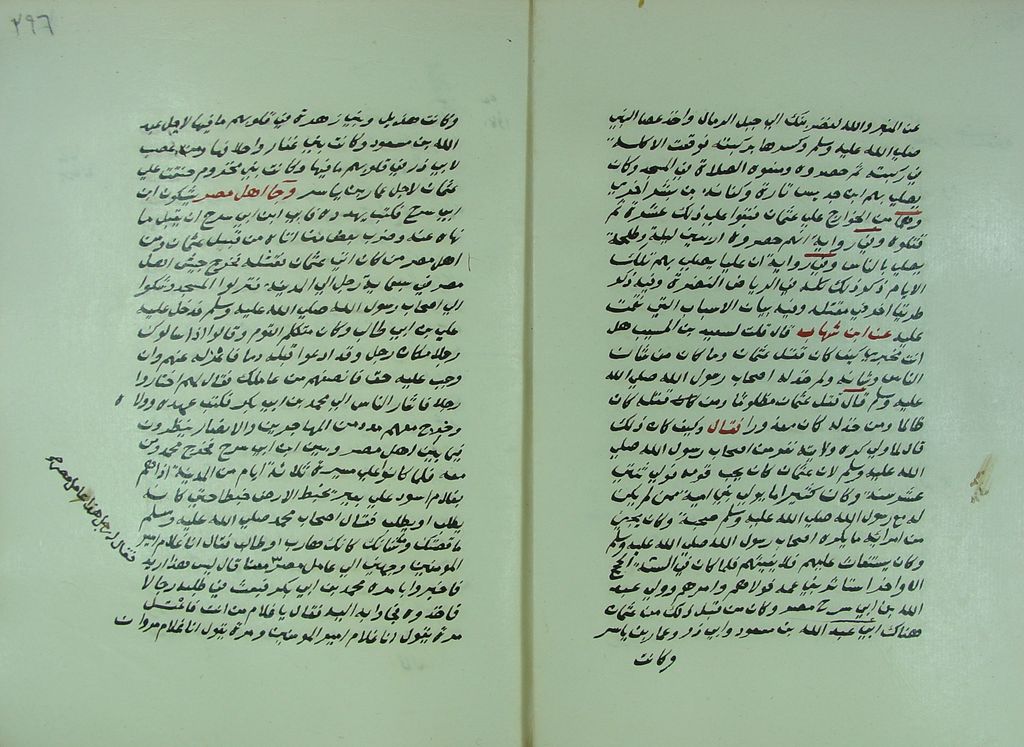 عن المنبر والله لنغضربنك الي جبل الدمال واخذ عصا النبي
صلي الله عليه وسلم وكسرها بركبته فوقعت الاكلة
في ركبته ثم حصروه ومنعوه الصلاة في المسجد وكان
يصلي بهم ابن حديس تارة وكنانة بن بشر اخري
وهما من الخوارج علي عثمان فبقوا علي ذلك عشرة ثم
قتلوه وفي رواية انهم حصروه اربعين ليلة وطلحة
يصلي بالناس وفي رواية ان عليا يصلي بهم تلك
الايام ذكر ذلك كله في الرياض النضرة وفيه ذكر
طريقا اخر في مقتله وفيه بيان الاسباب التي نقمت
عليه عن ابن شهاب قال قلت لسعيد بن المسيب هل
انت مخبري كيف كان قتل عثمان وما كان من شان
الناس وشانه ولم خذله اصحاب رسول الله صلي الله
عليه وسلم قال قتل عثمان مظلوما ومن قتله كان
ظالما ومن خذله كان معذورا فقال وكيف كان ذلك
قال لما ولي كره ولايته نفر من اصحاب رسول الله صلي
الله عليه وسلم لان عثمان كان يحب قومه فولي ثنتي
عشر سنة وكان كثيرا ما يولي بني امية ممن لم يكن
له مع رسول الله صلي الله عليه وسلم صحبة وكان يجي
من امرائه ما يكره اصحاب رسول الله صلي الله عليه وسلم
وكان يستغاث عليهم فلا يغيثهم فلما كان في الستة الحجج
الاواخر استاثر بني عمه فولاهم وامرهم وولي عبد
الله بن ابي سرح مصر وكان من قبل ذلك من عثمان
هناك الي عبد الله بن مسعود وابي ذر وعمار بن ياسر
وكانت
٢٩٦
وكانت هذيل وبني زهرة في قلوبهم ما فيها لاجل عبد
الله بن مسعود وكانت بني غفار واحلافها ومن غضب
لابي ذر في قلوبهم ما فيها وكانت بني مخزوم حنقت علي
عثمان لاجل عمار بن ياسر وجا اهل مصر يشكون ابن
ابي سرح فكتب يهدده فابي ابن ابي سرح ان يقبل ما
نهاه عنه وضرب بعض من اتاه من قبل عثمان ومن
اهل مصر من كان اتي عثمان فقتله فخرج جيش اهل
مصر في سبعماية رجل الي المدينة فنزلوا المسجد وشكوا
الي اصحاب رسول الله صلي الله عليه وسلم فدخل عليه
علي بن ابي طالب وكان متكلم القوم وقالوا انما سالوك
رجلا مكان رجل وقد ادعوا قبله دما فاعزله عنهم وان
وجب عليه حق فانصفهم من عاملك فقال لهم اختاروا
رجلا فاشار الناس الي محمد بن ابي بكر فكتب عهده وولاه
وخرج معهم مدد من المهاجرين والانصار ينظرون
فيما بين اهل مصر وبين ابن ابي سرح فخرج محمد ومن
معه فلما كانوا علي مسيرة ثلاثة ايام من المدينة اذا هم
بغلام اسود علي بعير يخبط الارض خبطا حتي كانه
يطلب او يطلب فقال اصحاب محمد صلي الله عليه وسلم
ما قصتك وشانك كانك هارب او طالب فقال انا غلام امير
المومنين وجهني الي عامل مصر معنا قال ليس هذا اريد
فاخبروا بامره محمد بن ابي بكر فبعث في طلبه رجالا
فاخذوه فجاوا به اليه فقال يا غلام من انت فاقبل
مرة يقول انا غلام امير المومنين ومرة يقول انا غلام مروان
فقال رجل هذا عامل مصر